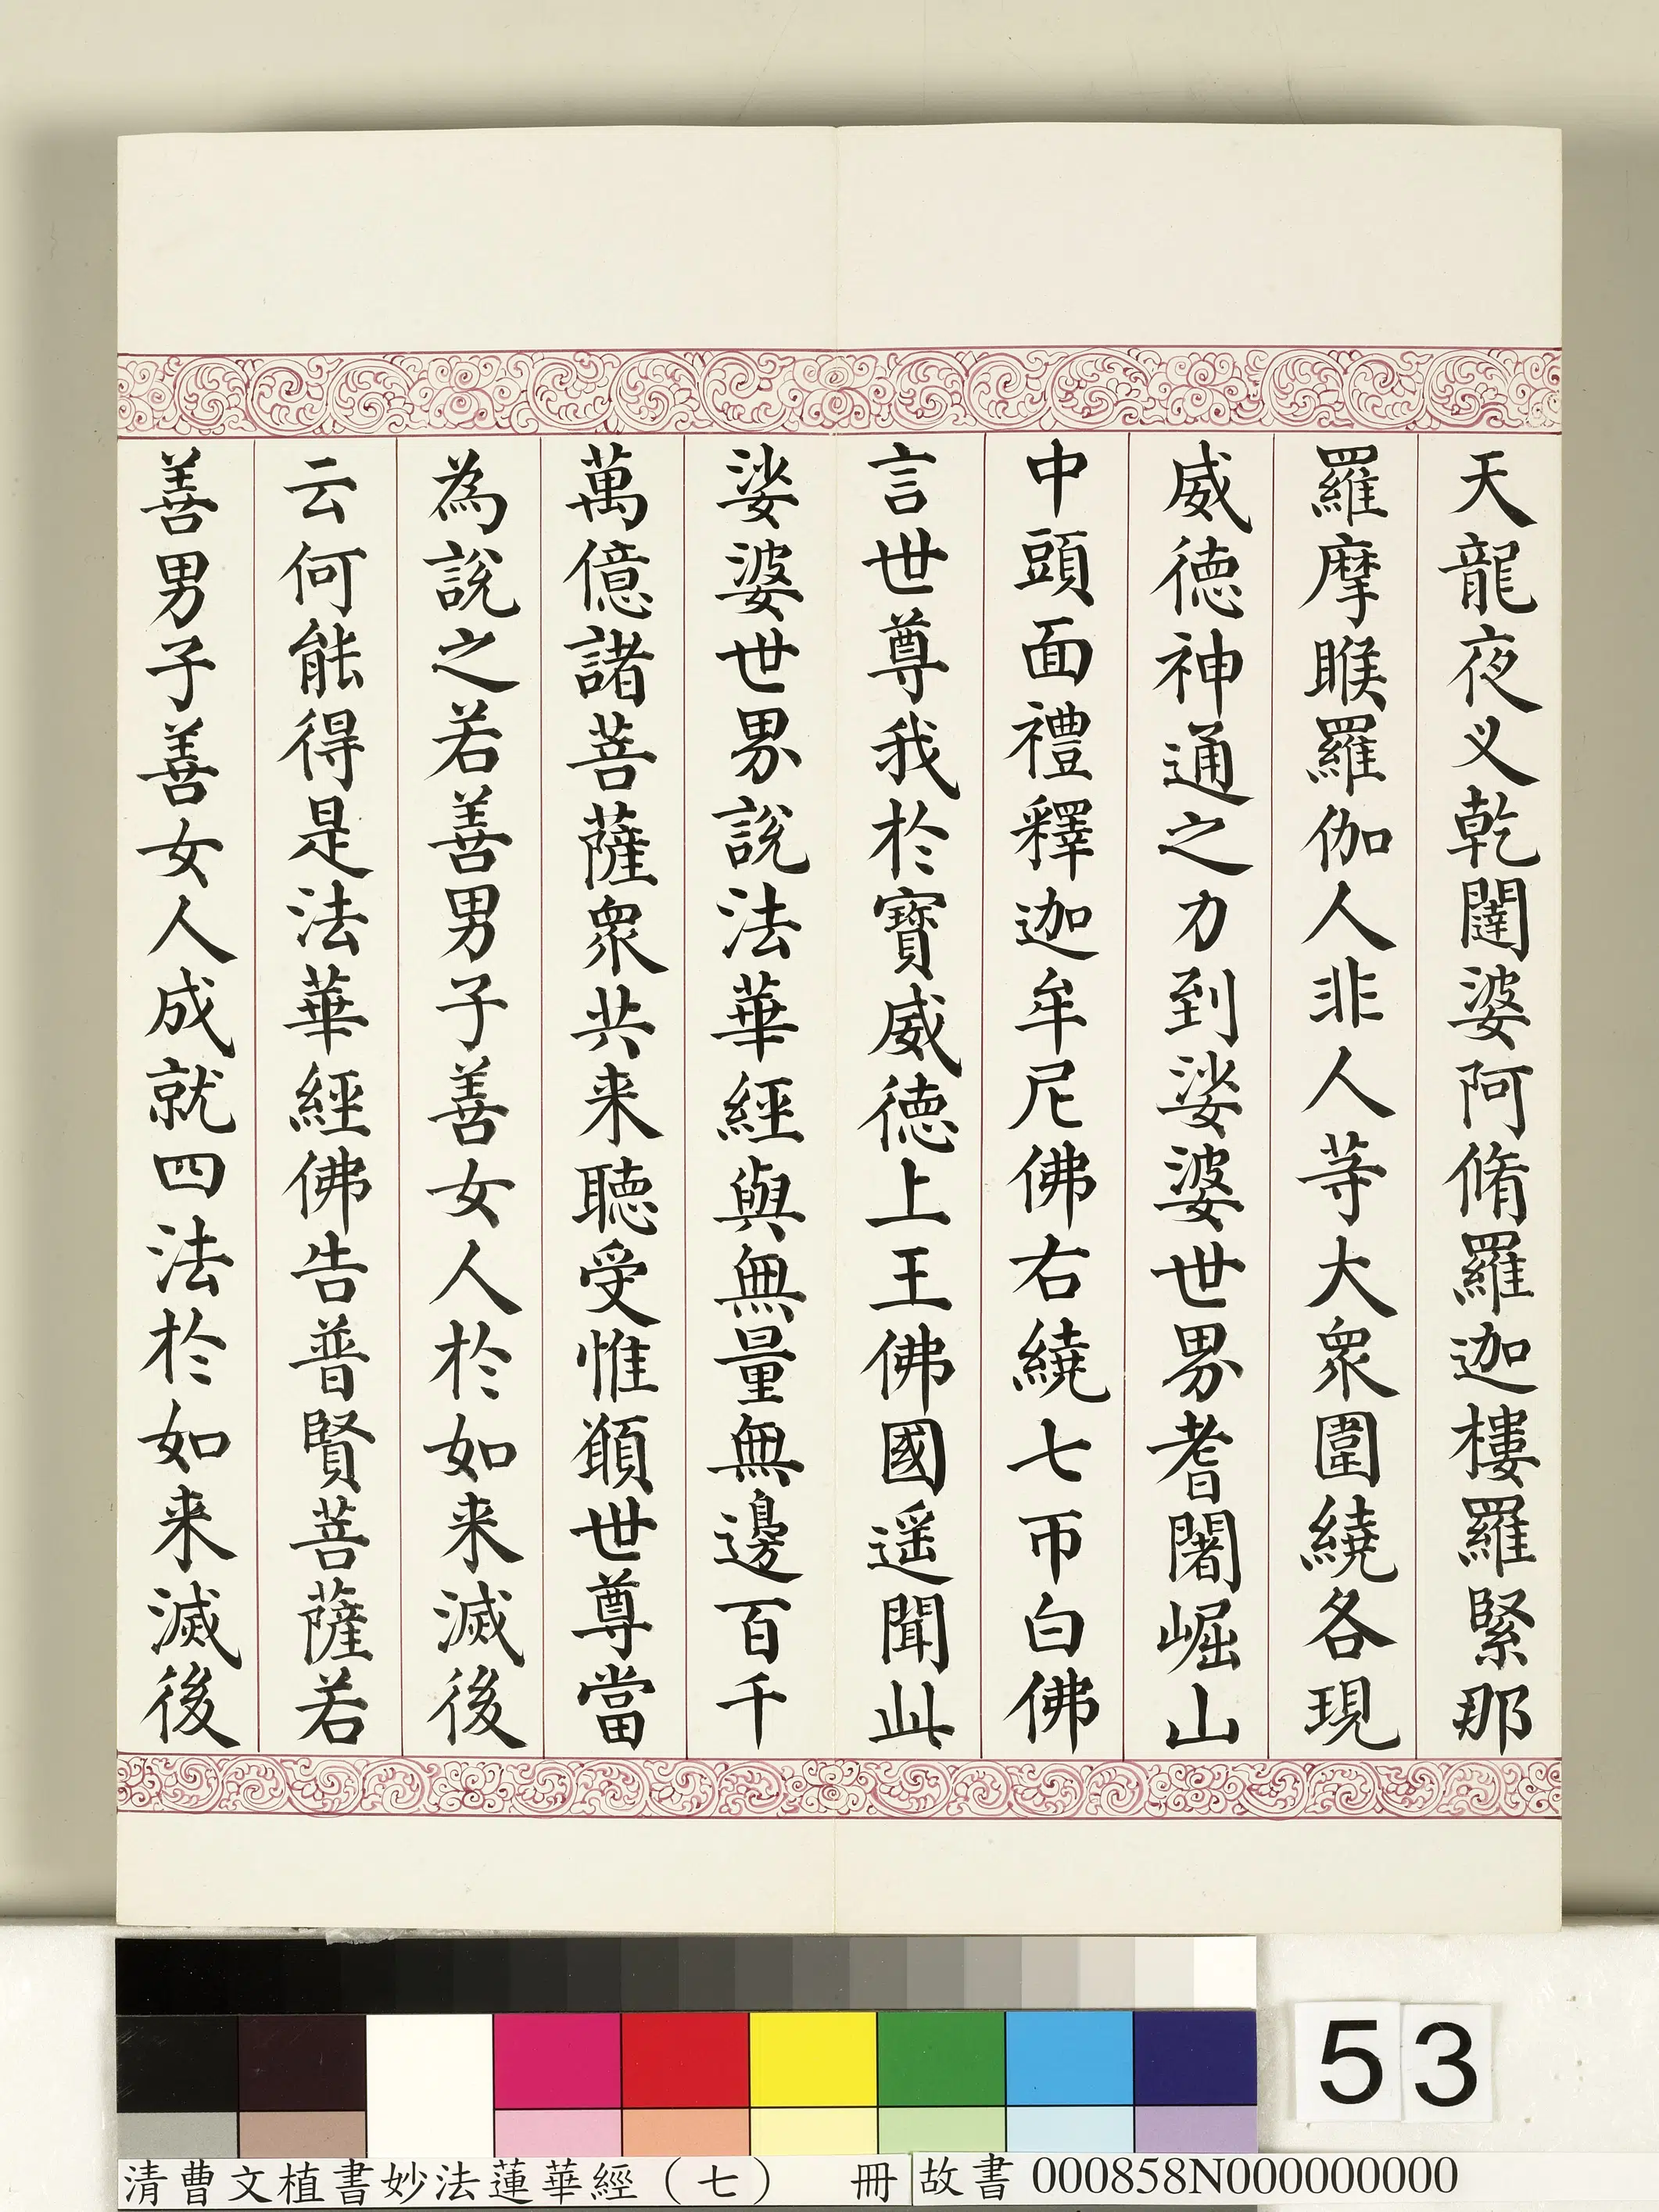 天龍夜义乾闥婆阿脩羅迦樓羅緊那
羅摩睺羅伽人非人等大衆圍繞各現
威德神通之力到娑婆世界耆闍崛山
中頭面禮釋迦牟尼佛右繞七帀白佛
言世尊我於寶威德上王佛國遥聞此
娑婆世界說法華經與無量無邊百千
萬億諸菩薩衆共来聽受惟願世尊當
為說之若善男子善女人於如来滅後
云何能得是法華經佛告普賢菩薩若
善男子善女人成就四法於如来滅後
53
清曹文植書妙法蓮華經（七） 冊 故書000858N000000000